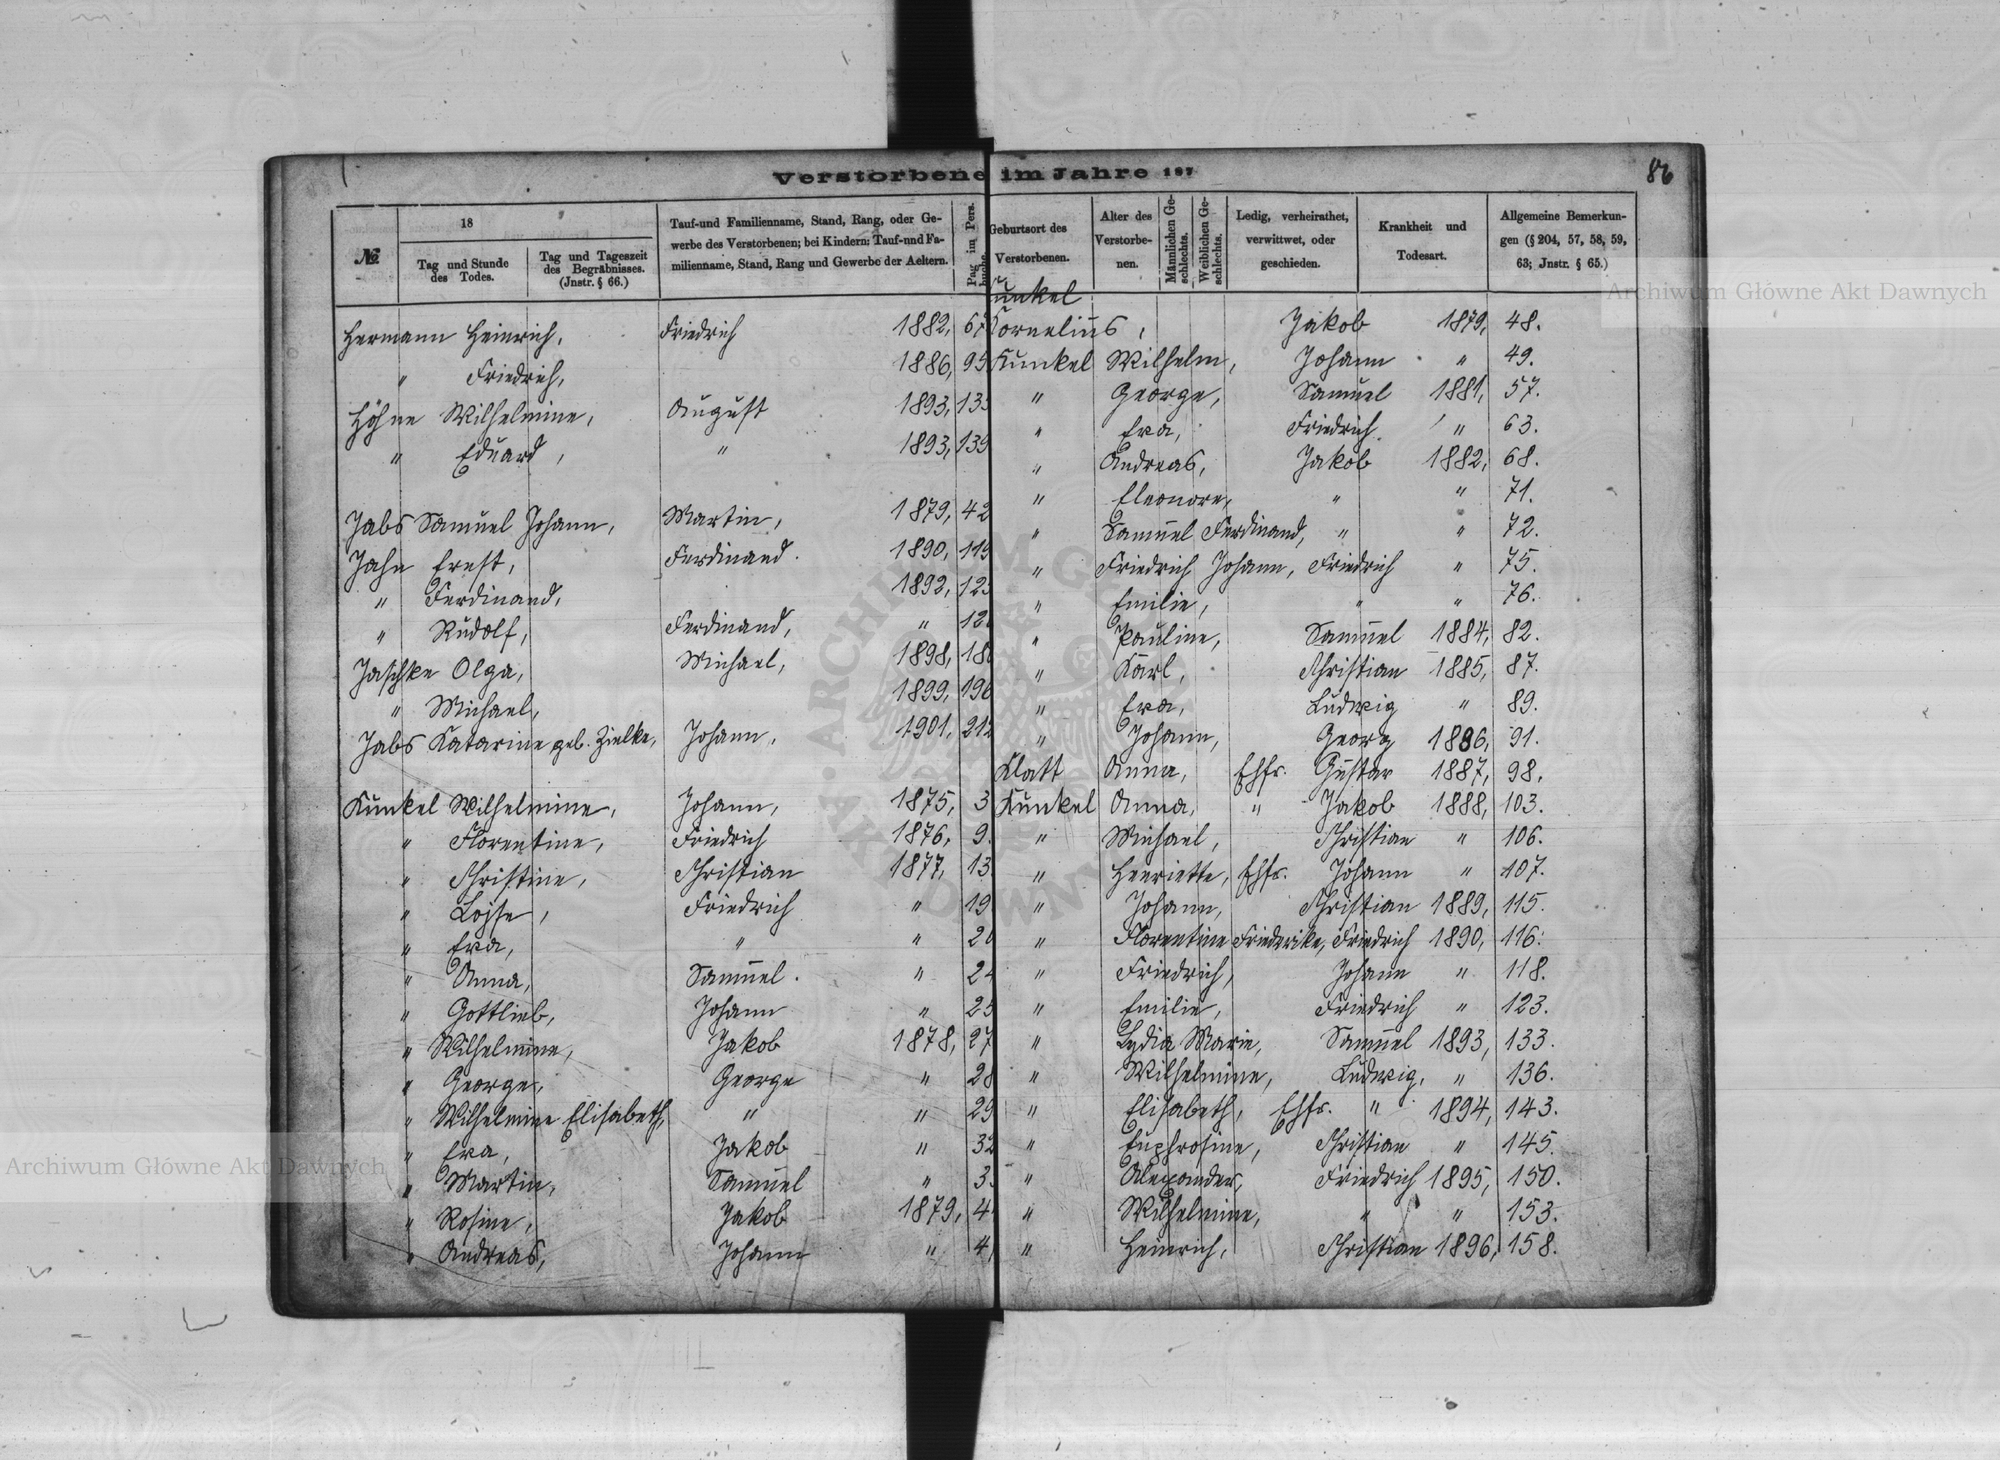 Verstorbene im Jahre 187
86
№
18
Tag und Stunde des Todes.
Tag und Tageszeit des Begräbnisses. (Jnstr. § 66.)
Tauf-und Familienname, Stand, Rang, oder Ge-
werbe des Verstorbenen; bei Kindern: Tauf-nnd Fa-
milienname, Stand, Rang und Gewerbe der Aeltern.
Pag im Pers. buche
Hermann Heinrich, Friedrich 1882, 67
" Friedrich, 1886, 95
Höhne Wilhelmine, August 1893, 133
" Eduard, " 1893, 139
Jabs Samuel Johann, Martin, 1879, 42
Jahn Ernst, Ferdinand. 1890, 119
" Ferdinand, 1892, 125
" Rudolf, Ferdinand, " 12
Jaschke Olga, Michael, 1898, 18
" Michael, 1899, 196
Jabs Katarine geb. Zielke, Johann, 1901, 212
Kunkel Wilhelmine, Johann, 1875, 3
" Florentine, Friedrich 1876, 9.
" Christine, Christian 1877, 13
" Loise, Friedrich " 19
" Eva, " " 20
" Anna, Samuel. " 24
" Gottlieb, Johann " 25
" Wilhelmine, Jakob 1878, 27
" George, George " 28
" Wilhelmine Elisabeth, " " 29
" Eva, Jakob " 32
" Martin, Samuel " 3
" Rosine, Jakob 1879, 4
" Andreas, Johann " 4
Geburtsort des Verstorbenen.
Alter des Verstorbe-nen.
Männlichen Ge-schlechts.
Weiblichen Ge-schlechts.
Ledig, verheirathet, verwittwet, oder geschieden.
Krankheit und Todesart.
Allgemeine Bemerkun-
gen (§ 204, 57, 58, 59,
63; Jnstr. § 65.)
Kunkel
Cornelius, Jakob 1879, 48.
Kunkel Wilhelm, Johann " 49.
" George, Samuel 1881, 57.
" Eva, Friedrich " 63.
" Andreas, Jakob 1882, 68.
" Eleonore, " " 71.
" Samuel Ferdinand, " " 72.
" Friedrich Johann, Friedrich " 75.
" Emilie, " " 76.
" Pauline, Samuel 1884, 82.
" Karl, Christian 1885, 87.
" Eva, Ludwig " 89.
" Johann, Georg 1886, 91.
Klatt Anna, Ehfr. Gustav 1887, 98.
Kunkel Anna, " Jakob 1888, 103.
" Michael, Christian " 106.
" Henriette, Ehfr. Johann " 107.
" Johann, Christian 1889, 115.
" Florentine Friederike, Friedrich 1890, 116.
" Friedrich, Johann " 118.
" Emilie, Friedrich " 123.
" Lydia Marie, Samuel 1893, 133.
" Wilhelmine, Ludwig, " 136.
" Elisabeth, Ehfr. " 1894, 143.
" Euphrosine, Christian " 145.
" Alexander, Friedrich 1895, 150.
" Wilhelmine, " " 153.
" Heinrich, Christian 1896, 158.
Archiwum Główne Akt Dawnych
Archiwum Główne Akt Dawnych